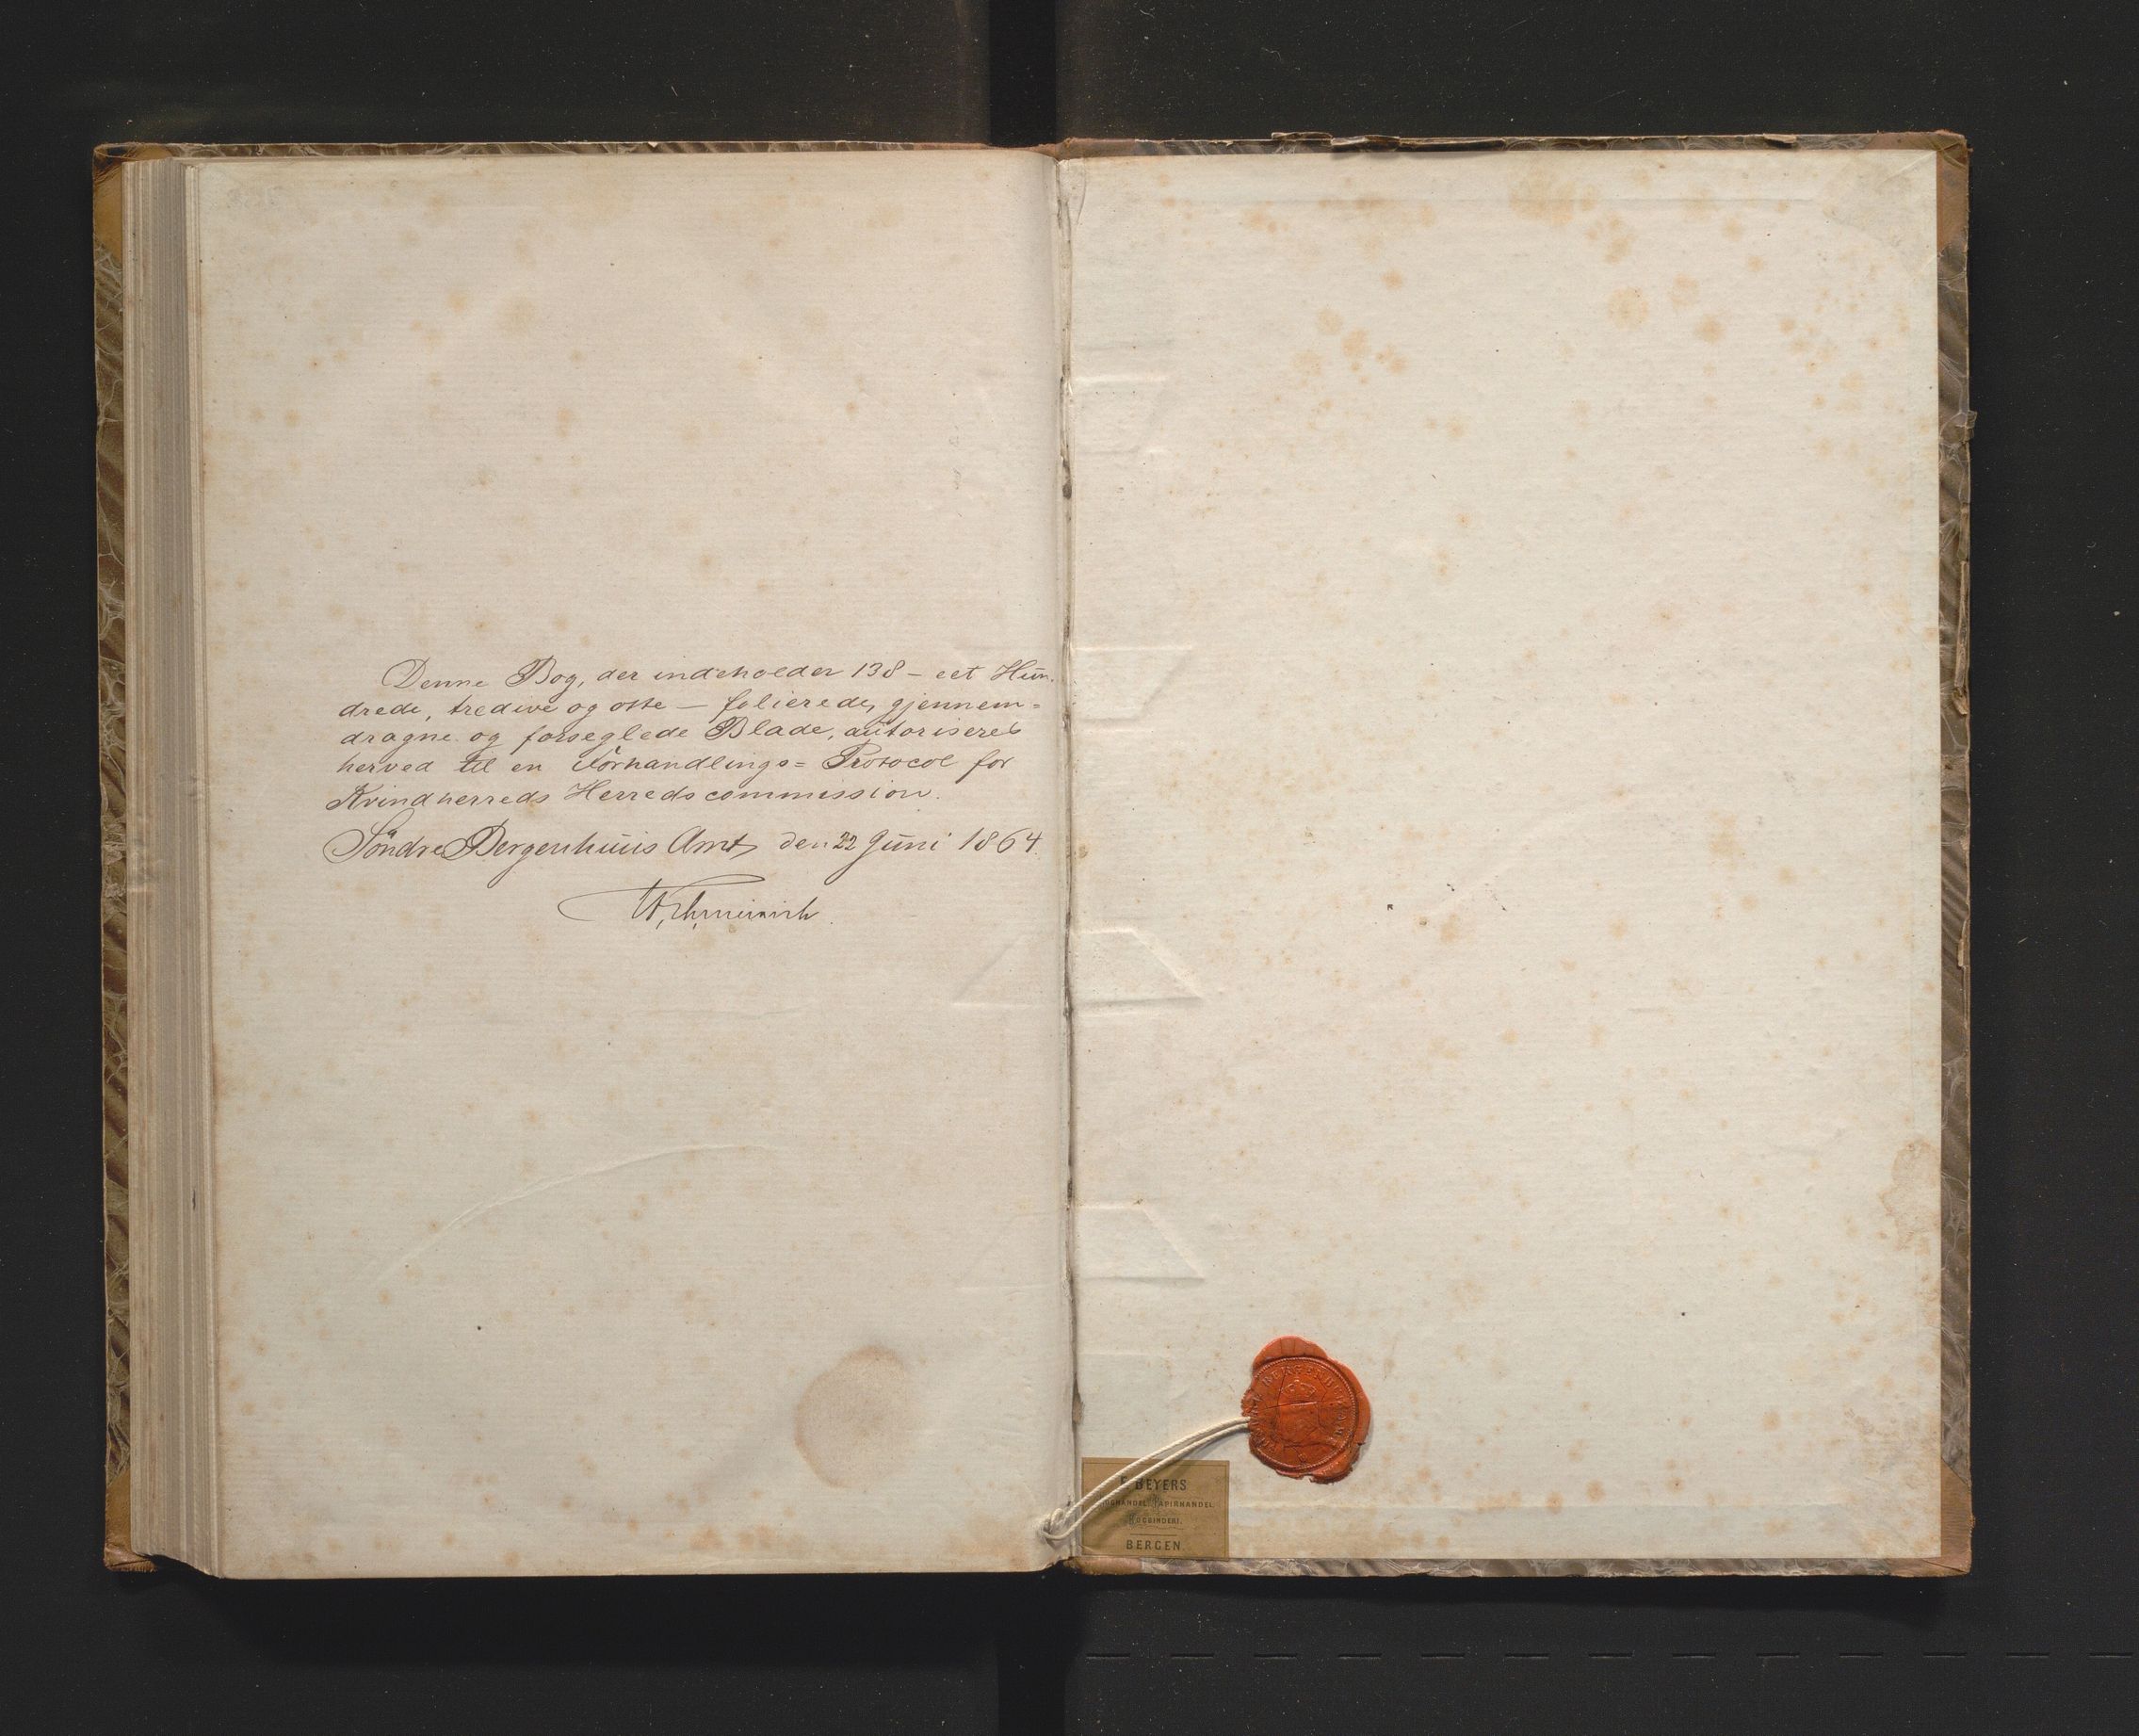 Denne Bog, der indeholder 138 – eet Hun-
drede, tredive og otte — folierede, gjennem=
dragne og forseglede Blade, autoriseres
herved til en Forhandlings= Protocol for
Kvindherreds Herredscommission.
Söndre Bergenhuus Amt, den 22 Juni 1864.
F. BEYERS
BOGHANDEL. PAPIRHANDEL.
BOGBINDERI.
BERGEN